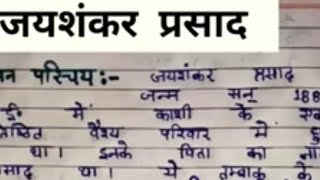 जयशंकर प्रसाद
परिचय:- जयशंकर प्रसाद
जन्म सन्
ई. में काशी के
वैश्य परिवार में
था। इनके पिता का
था। ये तम्बाकू के